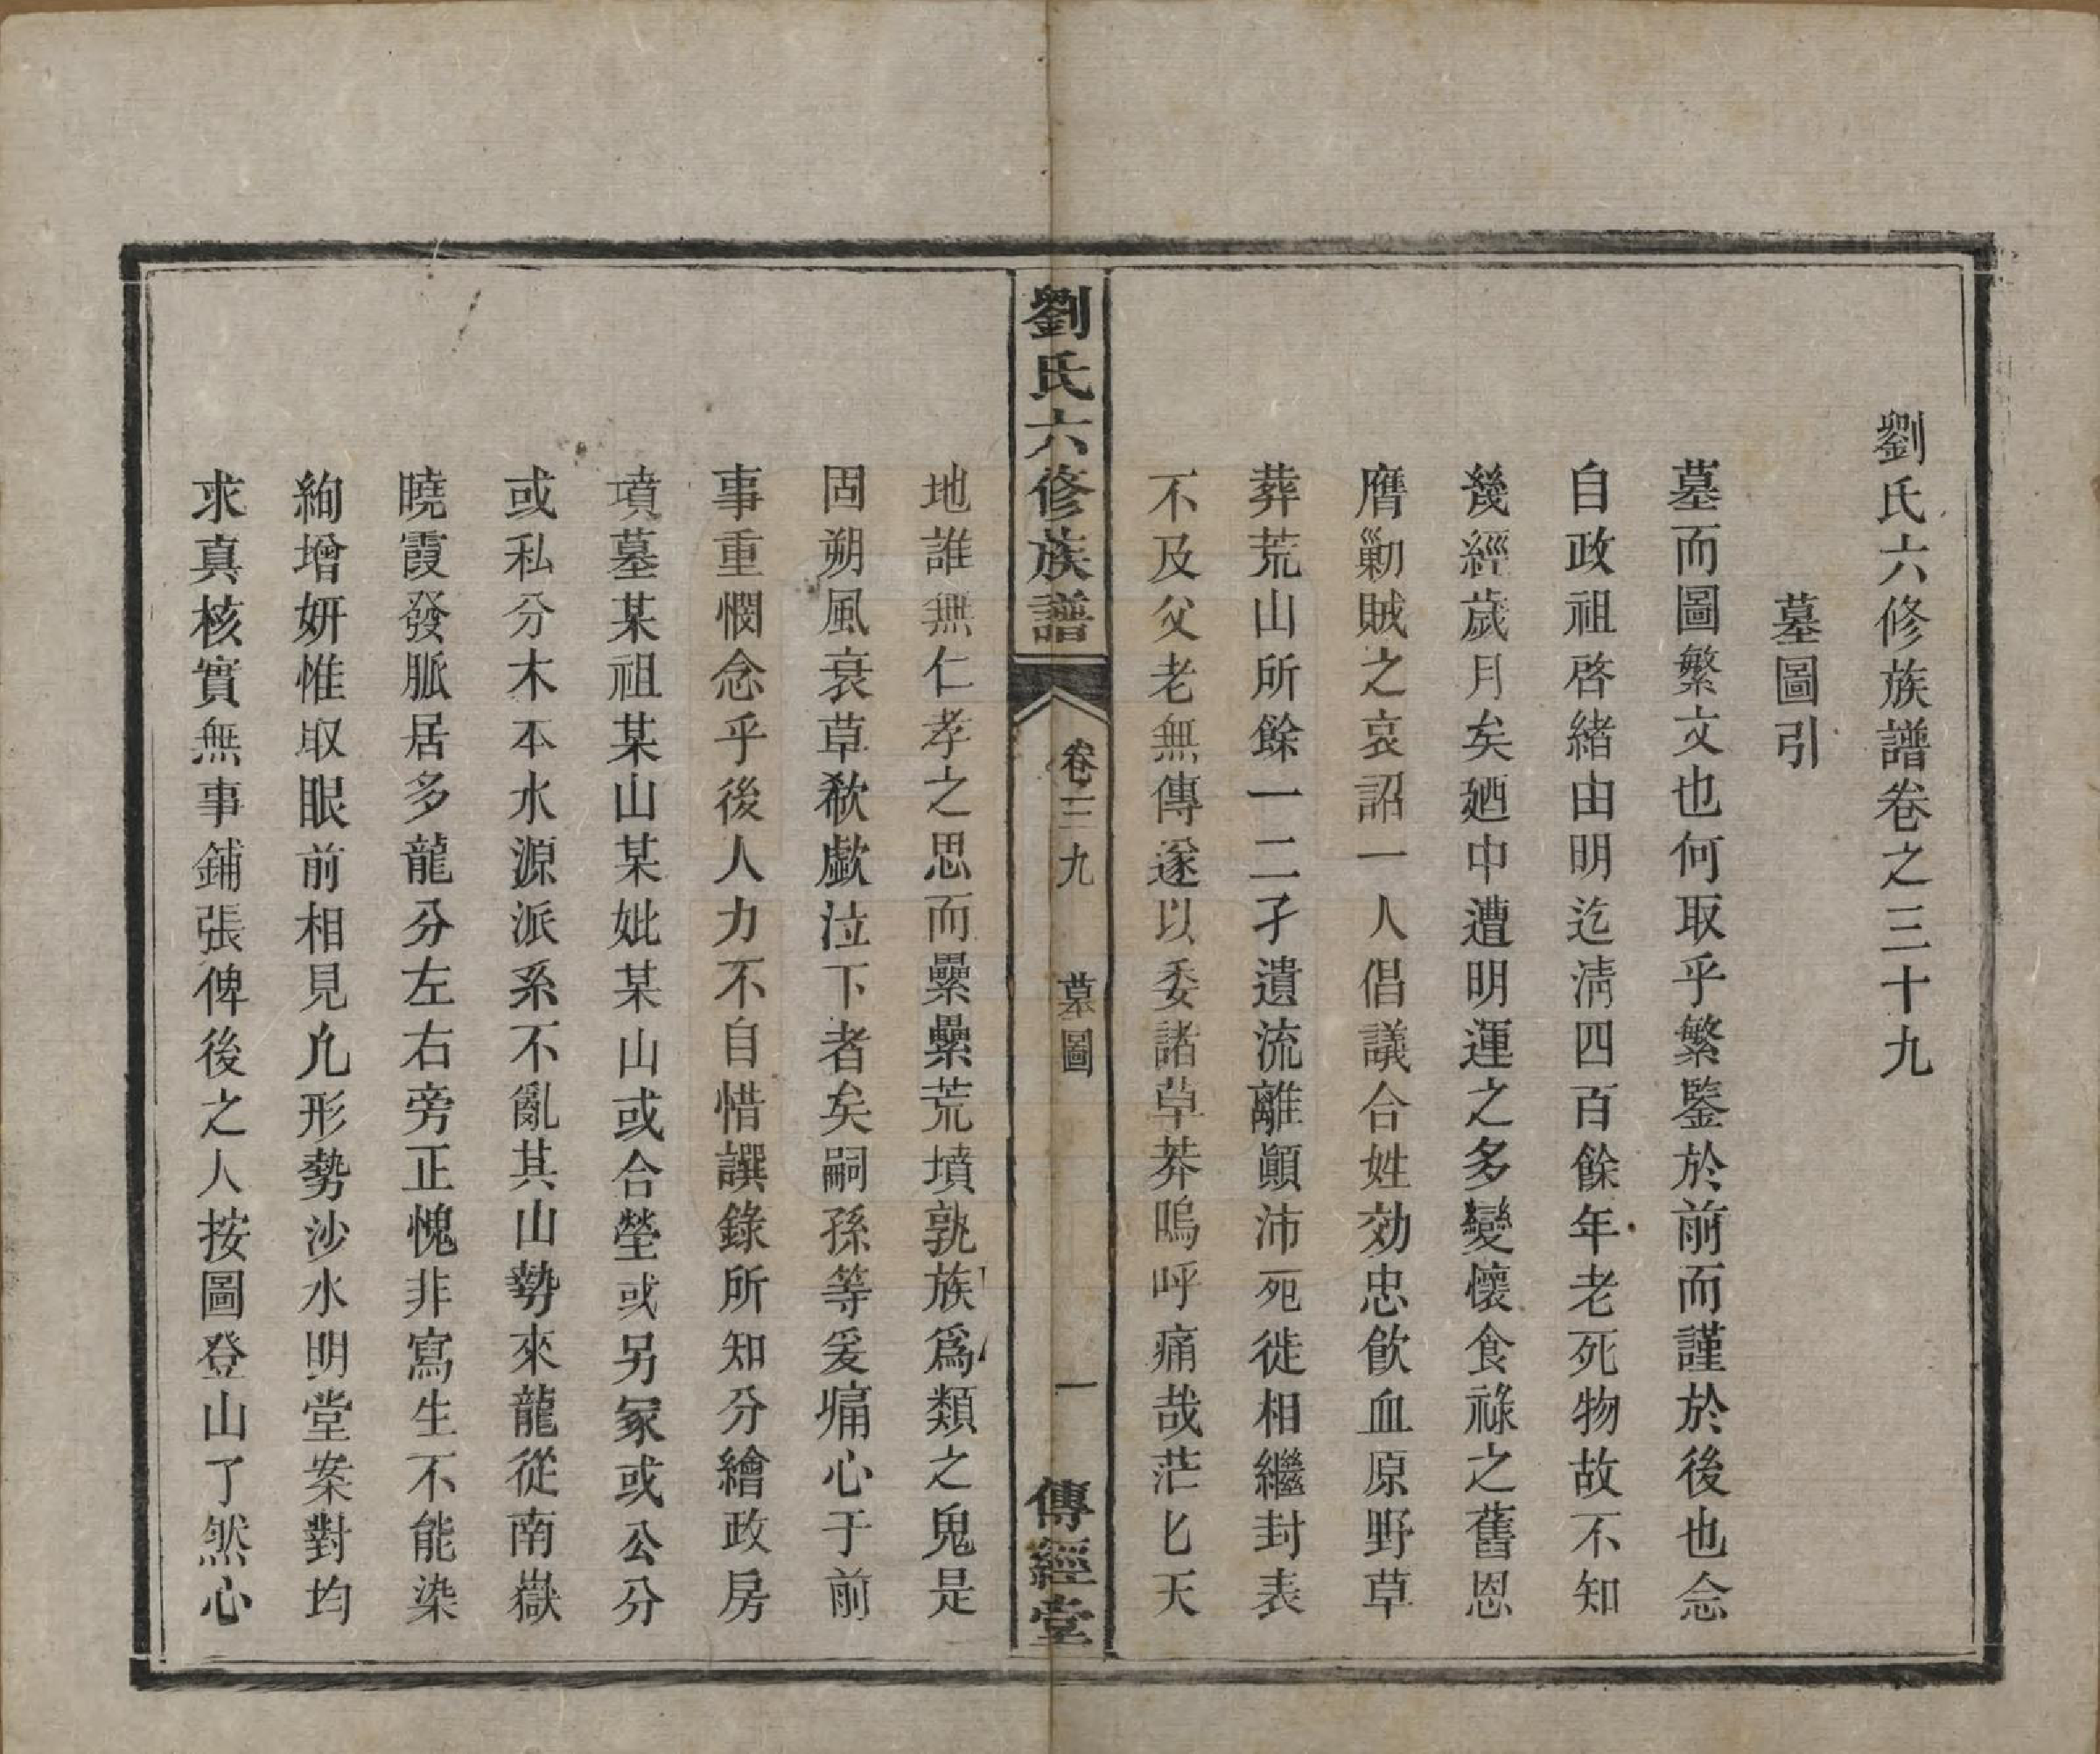 劉氏六修族譜卷之三十九
墓圖引
墓而圖繁文也何取乎繁鑒於前而謹於後也念
自政祖啓緒由明迄淸四百餘年老死物故不知
幾經歲月矣廼中遭明運之多變懷食祿之舊恩
膺剿賊之哀詔一人倡議合姓効忠飮血原野草
葬荒山所餘一二孑遺流離顚沛死徙相繼封表
不及父老無傳遂以委諸草莽嗚呼痛哉茫匕天
劉氏六修族譜
卷三九
墓圖
一
傳經堂
地誰無仁孝之思而纍纍荒墳孰族爲類之鬼是
固朔風衰草欷歔泣下者矣嗣孫等爰痛心于前
事重憫念乎後人力不自惜譔錄所知分繪政房
墳墓某祖某山某妣某山或合塋或另冢或公分
或私分木本水源派系不亂其山勢來龍從南嶽
曉霞發脈居多龍分左右旁正愧非寫生不能染
絢增妍惟取眼前相見凢形勢沙水明堂案對均
求真核實無事鋪張俾後之人按圖登山了然心